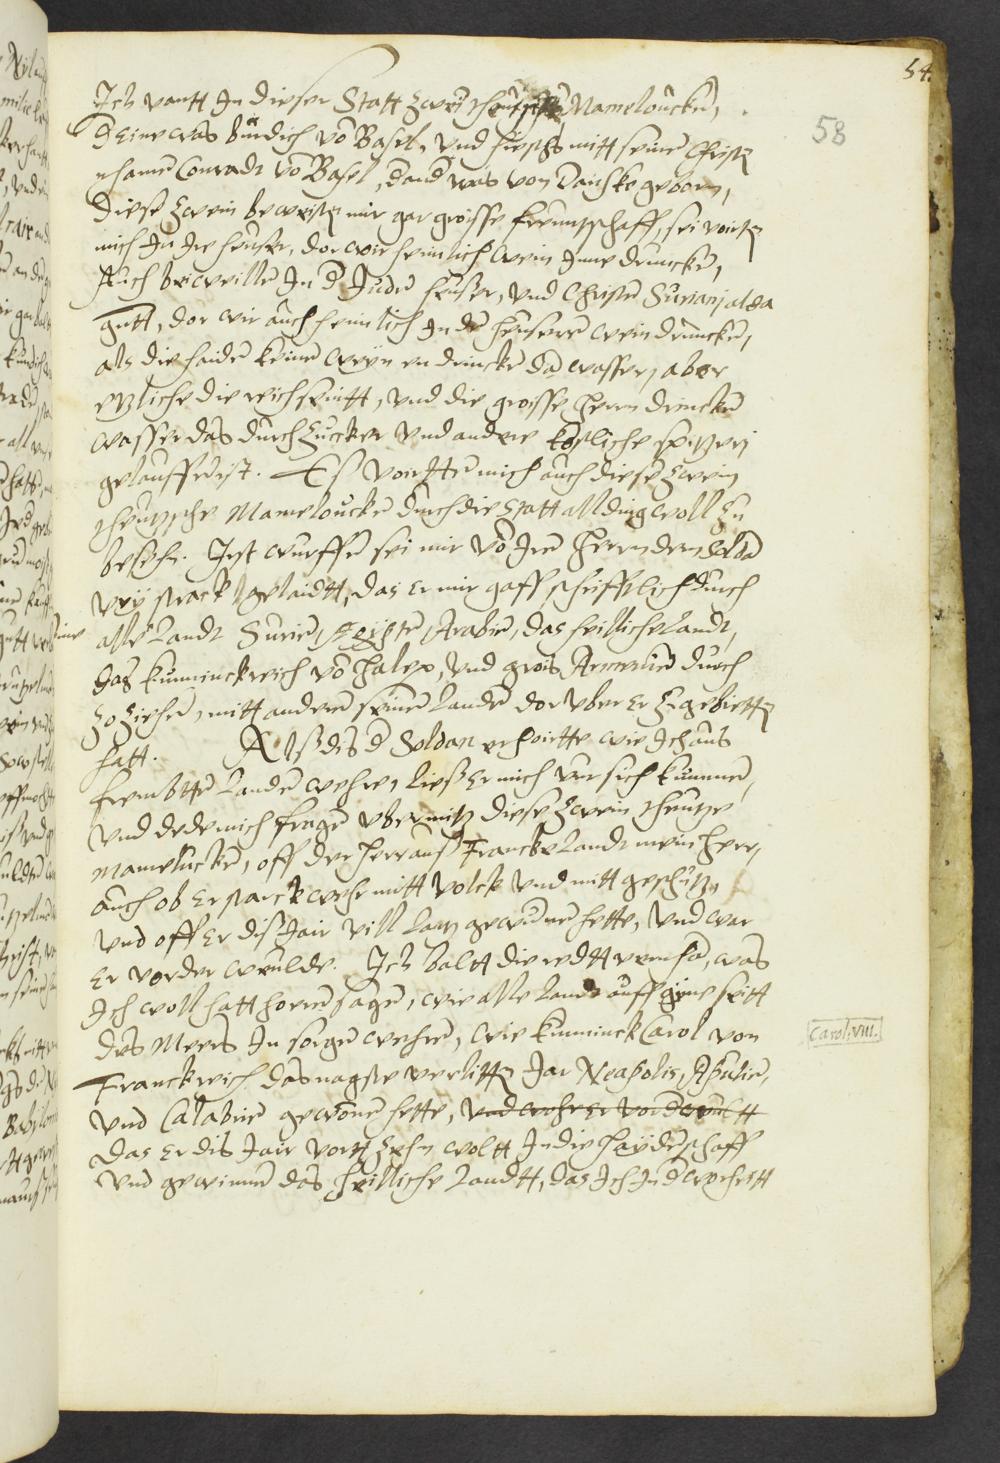 54.
58
Ich vantt In dieser Statt zwei theutsche Mameloucken,
d Eine was burdich vo Basel, vnd hiesch mitt seine Christ
nhame Conradt vo Basel, dand was von Danske geborn,
Diese zwein bewisten mir gar groisse freuntschaff, sei voirten
mich In Ire heuser, dor wir heimlich wein Inne druncken,
Auch beiweillen In d Juden heuser, vnd Christen Suriani alda
gutt, dor wir auch heimlich In den heusere wein druncken,
als die heiden keine weyn en drincken dan wasser, aber
etzliche die reich seintt, vnd die groisse hern drincken
wasser das durch Zucker vnd andere kostliche spetzerej
gelauffen ist. Es voirtten mich auch diese zwein
theutsche Mameloucken durch die Statt all ding woll zu
besehn. Irst wurffen sei mir vo Iren hern dem Soldan
vry starck gelaidtt, das Er mir gaff schrifftlich durch
alle Landt Surien, Egipten, Arabien, das heilliche Landt,
das kunninckreich vo Halep, vnd grois Armenien durch
zo ziehen, mitt anderen seinen Landen dor vber Er Zegebietten
hatt. Alß dis d Soldan erhoirtte wie Ich aus
frembtten Landen wehre, ließ Er mich vur sich kummen,
vnd dede mich fragen vbermitz diese zwein theutze
Mamelucken, off der herr auß Franckelandt mein herr,
auch ob Er starck wehr mitt volck vnd mitt geschutz,
vnd off Er dis Jair vill Lantz gewunnen hette, vnd war
Er vorder wuulde. Ich baltt die redtt vernha, was
Ich woll hatt horen sagen, wie alle Landt auff gine seitt
des Meers In sorgen wehren, wie kunninck Carol von
Franckreich das nagste verlitten Jar Neapolis, Apulie,
vnd Calabrie gewonnen hette, vnd wohr er vord wultt
das Er dis Jair vortt zehn woltt In die heydeschaff
vnd gewinnen das heilliche Landtt, das Ich In d worheitt
Carol. VIII.